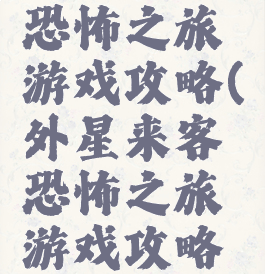 恐怖之旅
游戏攻略(
外星来客
恐怖之旅
游戏攻略